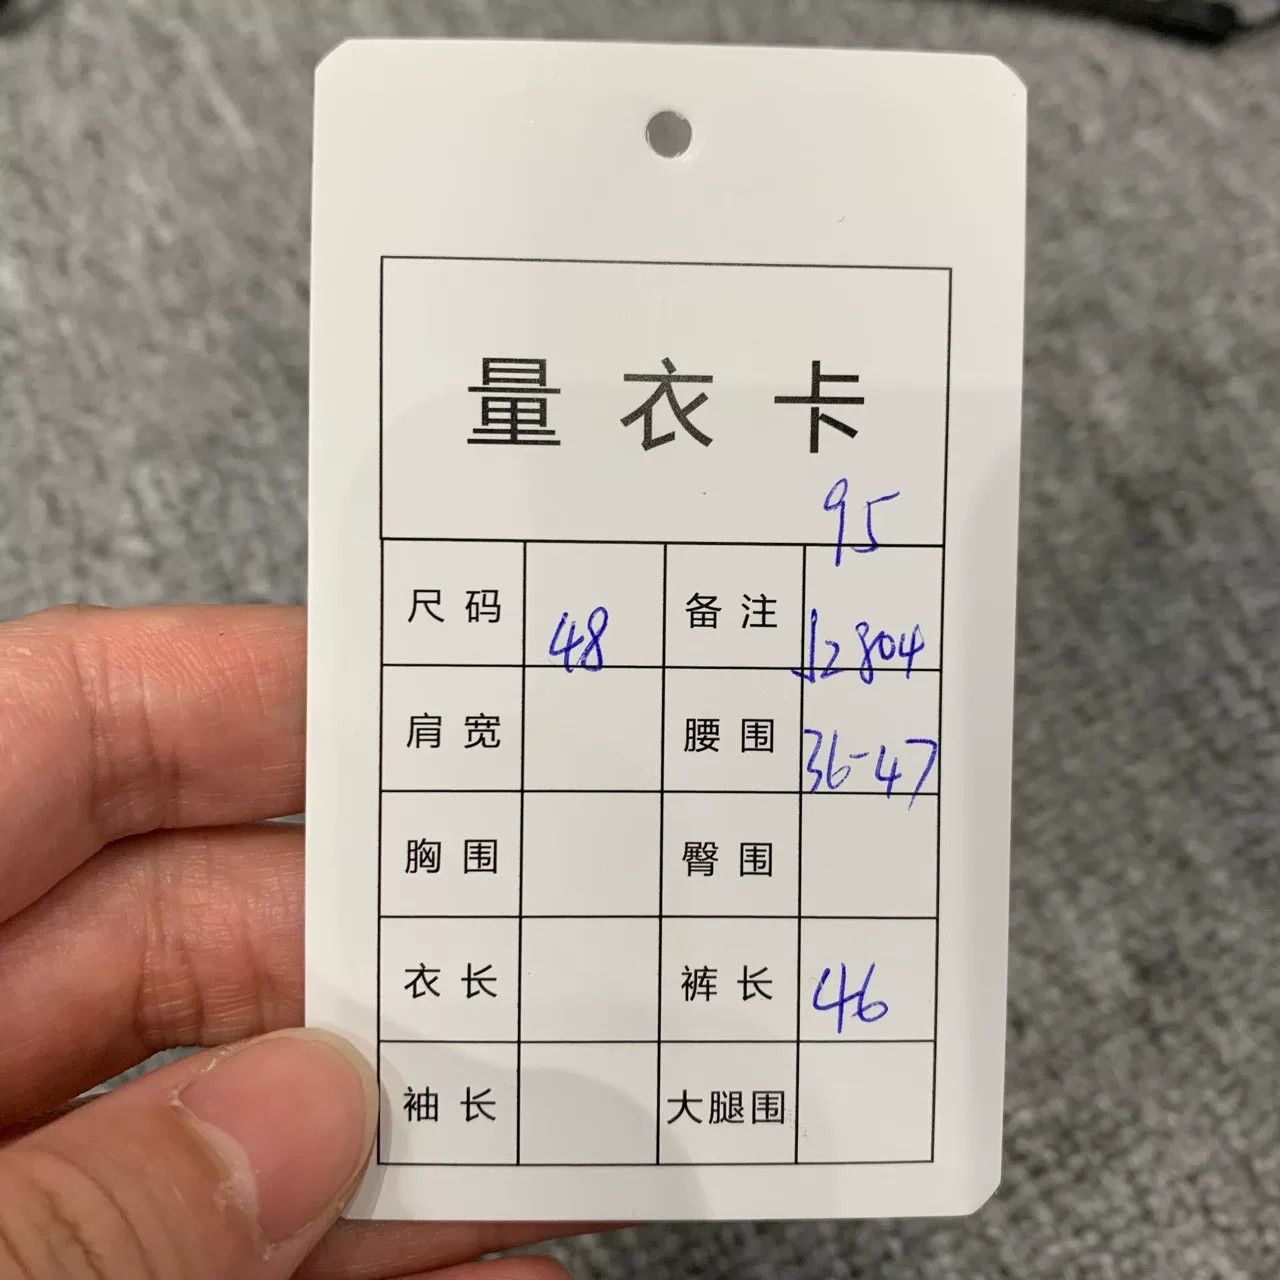 量衣卡
95
尺码 48 备注 J2804
肩宽 腰围 36-47
胸围 臀围
衣长 裤长 46
袖长 大腿围